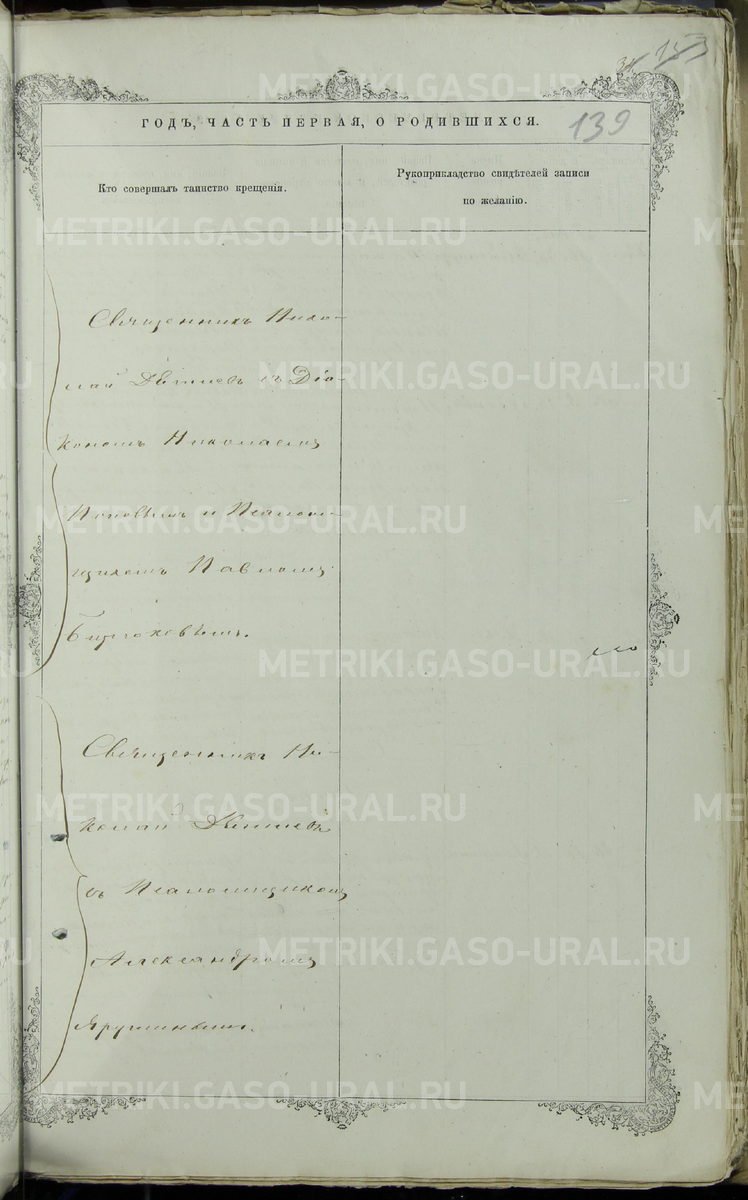 139
ГОДЪ, ЧАСТЬ ПЕРВАЯ, О РОДИВШИХСЯ.
Кто совершалъ таинство крещенія.
Рукоприкладство свидѣтелей записи
по желанію.
Священникъ Нико-
лай съ Діа-
кономъ Николаемъ
Поповымъ и Псаломщи-
щикомъ Павломъ
Бирюковымъ.
Священникъ Ни-
колай
съ Псаломщикомъ
Александромъ
METRIKI.GASO-URAL.RU